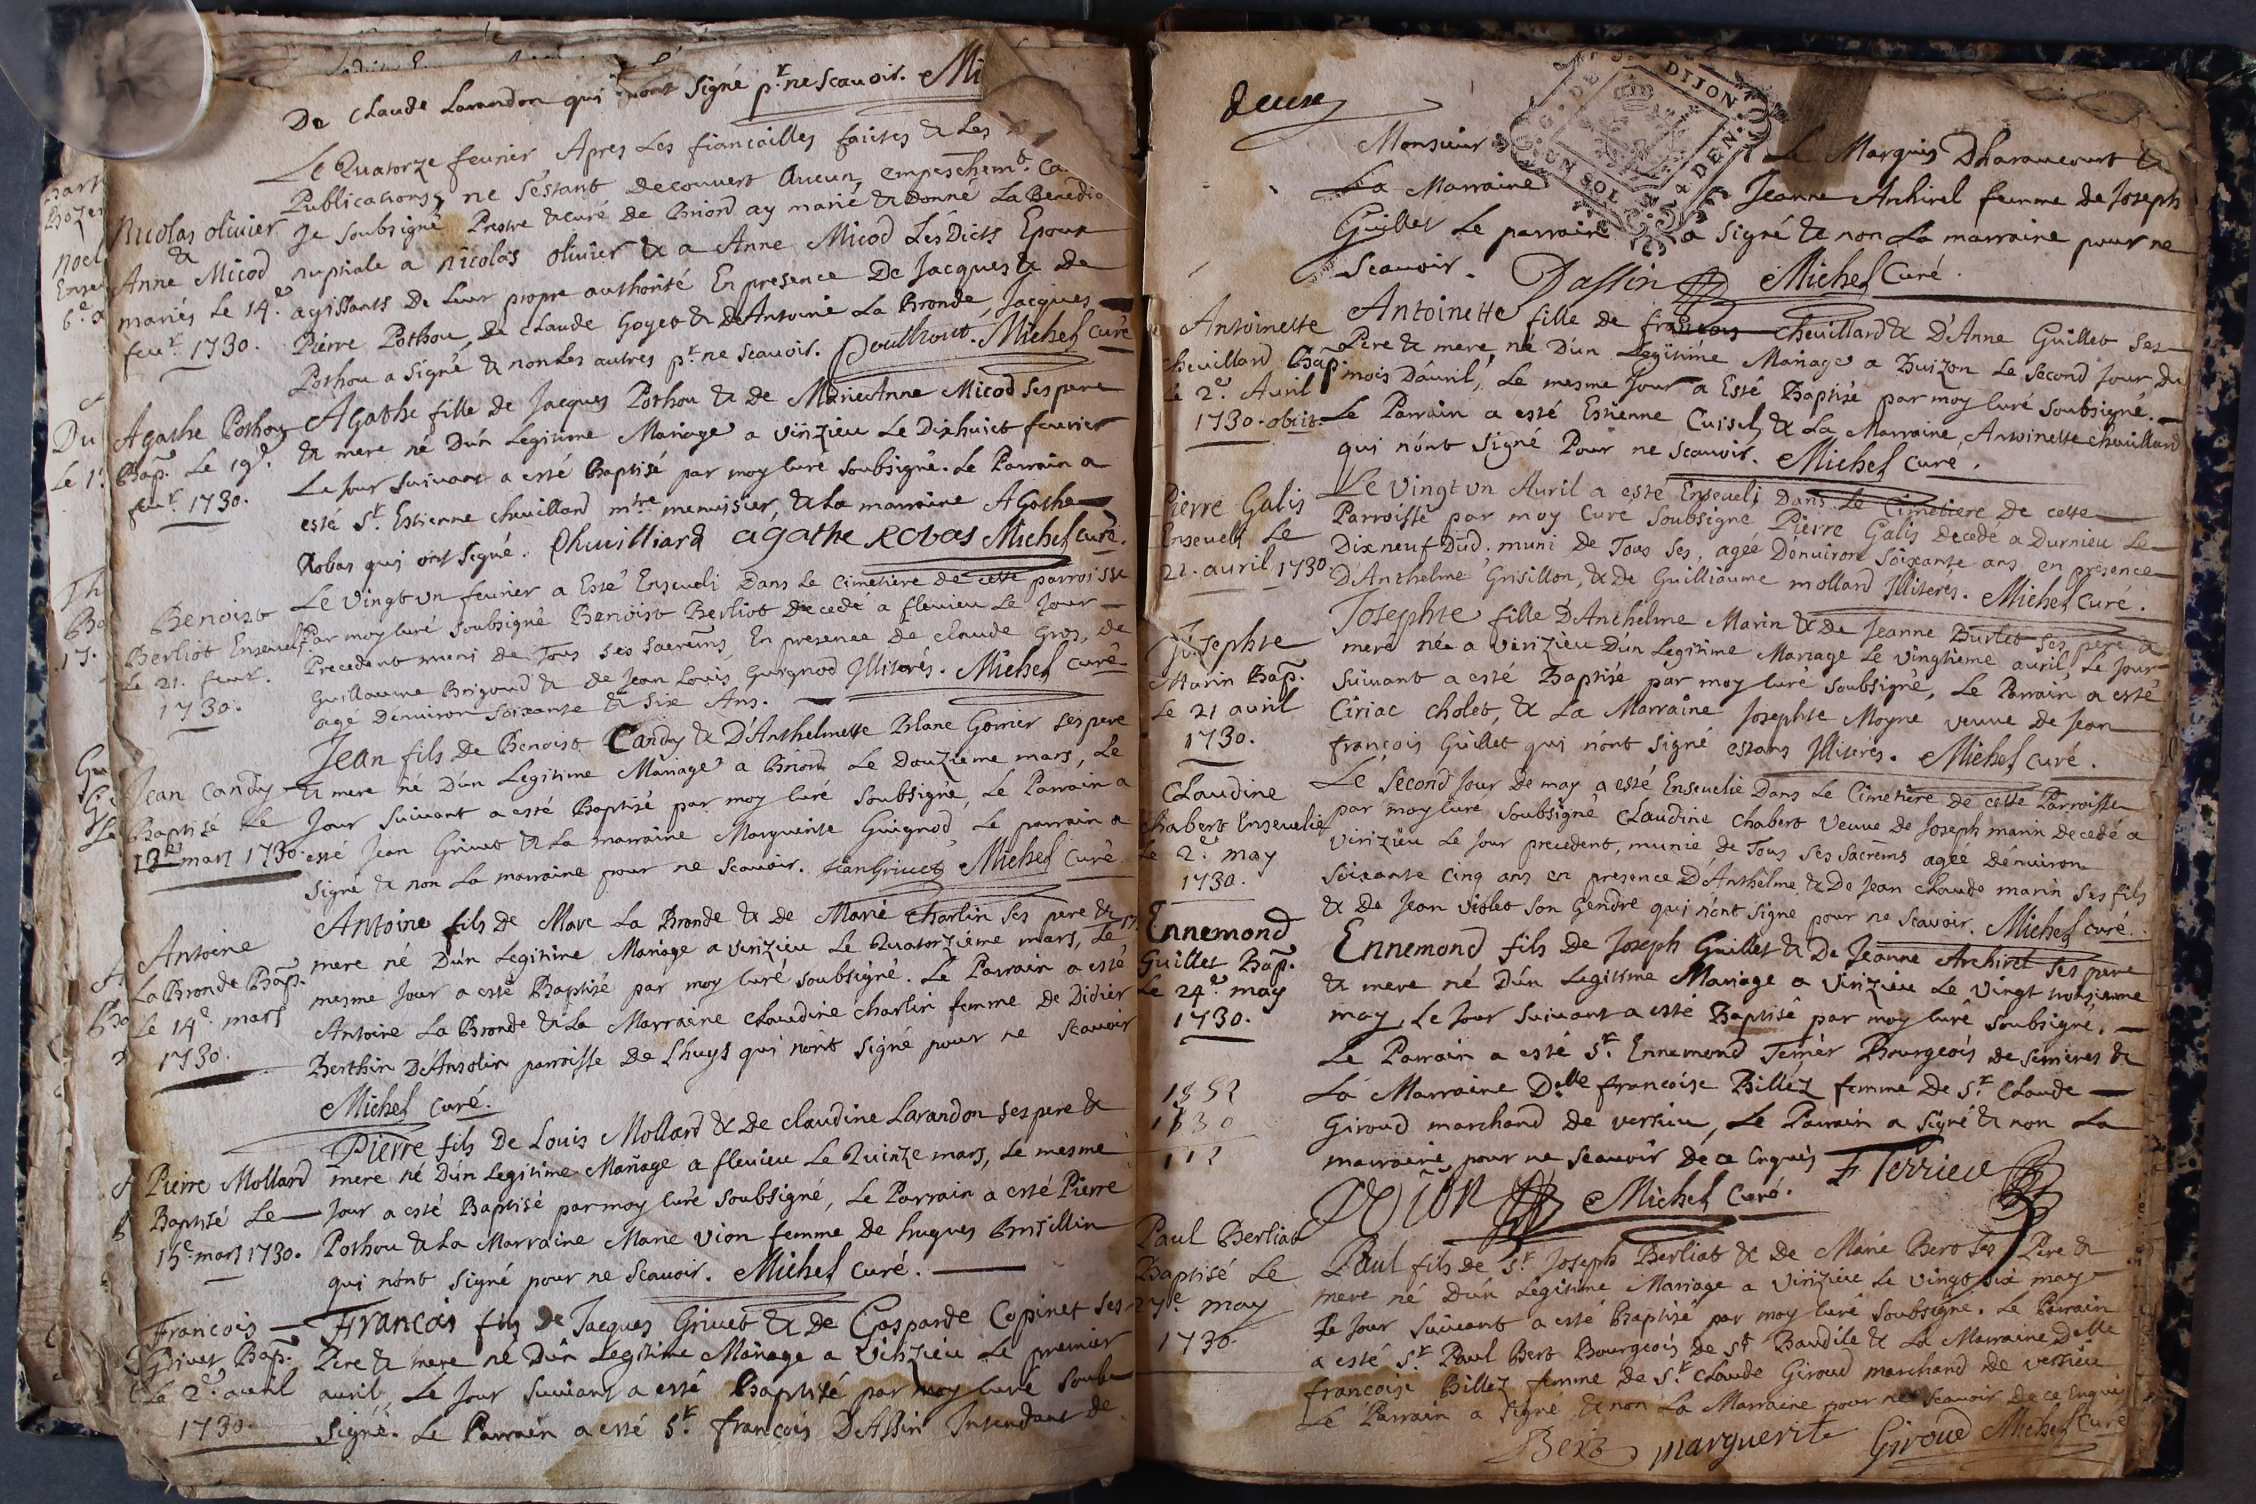 De Claude Larandon qui n'ont signé pr. ne scavoir. Mi
Le Quatorze fevrier Apres Les fiancailles faites & Les
Publications, ne s'estant decouvert Aucun empeschemt. Ca
Nicolas olivier
&
Anne Micod
mariés Le 14.e
fevr. 1730.
Je soubsigné Prestre & curé de Briord ay marié & donné La Benedic
nuptiale a nicolas olivier & a Anne Micod Lesdicts Epoux
agissants De Leur propre authorité En presence De Jacques & de
Pierre Pothou, de Claude Goyet & D'Antoine La Bronde, Jacques
Pothou a signé & non Les autres pr. ne scavoir. Pouthout. Michel curé
Agathe Pothou
Bap. Le 19e.
fevr. 1730.
Agathe fille de Jacques Pothou & de Marie Anne Micod ses pere
& mere né D'un Legitime Mariage a virizieu Le Dixhuict fevrier
Le Jour suivant a esté Baptisé par moy curé soubsigné. Le Parrain a
esté Sr. Estienne chevillard mtre menuisier, & La marraine Agathe
Robas qui ont signé. Chuvilliard agathe Robas Michel curé.
Benoist
Berliot Ensevely
Le 21. fevr.
1730.
Le vingt un fevrier a Esté Enseveli Dans Le Cimetiere de cette parroisse
Par moy curé soubsigné Benoist Berliot decedé a flevieu Le Jour
Precedent muni de Tous ses sacrems, En presence de claude Gros, de
Guillaume Brigoud & de Jean Louis Guignod Illiterés. Michel curé
agé D'environ soixante & six Ans.
Jean Candy
Baptisé Le
13e mars 1730.
Jean fils de Benoist Candy & D'Anthelmette Blanc Gonier ses pere
& mere né D'un Legitime Mariage a Briord Le Douzieme mars, Le
Jour suivant a esté Baptisé par moy curé soubsigné, Le Parrain a
esté Jean Grivet & La marraine Marguerite Guignod, Le parrain a
signé & non La marraine pour ne scavoir. Jean Grivet Michel curé.
Antoine
La Bronde Bap.
Le 14e. mars
1730.
Antoine fils de Marc La Bronde & de Marie Charlin ses pere &
mere né D'un Legitime Mariage a virizieu Le Quatorzieme mars, Le
mesme Jour a esté Baptisé par moy curé soubsigné. Le Parrain a esté
Antoine La Bronde & La Marraine Claudine charlin femme de Didier
Berthin D'Ansolin parroisse de Lhuys qui n'ont signé pour ne scavoir
Michel curé.
Pierre Mollard
Baptisé Le
15e. mars 1730.
Pierre fils De Louis Mollard & de claudine Larandon ses pere &
mere né D'un Legitime Mariage a flevieu Le Quinze mars, Le mesme
Jour a esté Baptisé par moy curé soubsigné, Le Parrain a esté Pierre
Pothou & La Marraine Marie vion femme de hugues Brisillin
qui n'ont signé pour ne scavoir. Michel curé.
Francois
Grivet Bap.
Le 2e. avril
1730.
Francois fils de Jacques Grivet & de Gasparde Copinet ses
Pere & mere né D'un Legitime Mariage a virizieu Le premier
avril, Le Jour suivant a esté Baptisé par moy curé soub
signé. Le Parrain a esté Sr. francois D'Assin Intendant de
deux
DIJON
UN SOL
Monsieur Le Marquis D'haraucourt &
La Marraine Jeanne Archirel femme de Joseph
Guillet Le parrain a signé & non La marraine pour ne
scavoir. Dassin Michel curé.
Antoinette
chevillard Bap.
Le 2e. Avril
1730. obiit.
Antoinette fille de francois chevillard & D'Anne Guillet ses
Pere & mere, né D'un Legitime Mariage a Buizon Le second Jour du
mois D'avril, Le mesme Jour a Esté Baptisé par moy curé soubsigné.
Le Parrain a esté Estienne Cuisel, & La Marraine, Antoinette chevillard
qui n'ont signé Pour ne scavoir. Michel curé.
Pierre Galis
Enseveli Le
21. avril 1730
Le vingt un Avril a esté Enseveli Dans Le Cimetiere De cette
Parroisse par moy Curé soubsigné Pierre Galis decedé a Durnieu Le
Dixneuf Dud. muni de Tous ses, agée D'environ soixante ans, en presence
D'Anthelme Grisillon, & de Guilliaume mollard Illiteres. Michel curé.
Josephte
Marin Bap.
Le 21 avril
1730.
Josephte fille D'Anthelme Marin & De Jeanne Burlet ses pere &
mere née a virizieu D'un Legitime Mariage Le vingtieme avril, Le Jour
suivant a esté Baptisé par moy curé soubsigné, Le Parrain a esté
Ciriac cholet, & La Marraine Josephte Moyne veuve de Jean
francois Guillet qui n'ont signé estans Illiterés. Michel curé.
Claudine
Chabert Ensevelie
Le 2e. may
1730.
Le second Jour De may a esté Ensevelie Dans Le Cimetiere de cette Parroisse
par moy curé soubsigné Claudine Chabert veuve de Joseph marin decedé a
virizieu Le Jour precedent, munie de Tous ses sacrems agée D'environ
soixante cinq ans en presence D'Anthelme & De Jean claude marin ses fils
& De Jean violet son Gendre qui n'ont signé pour ne scavoir. Michel curé.
Ennemond
Guillet Bap.
Le 24e. may
1730.
Ennemond fils de Joseph Guillet & De Jeanne Archirel ses pere
& mere né D'un Legitime Mariage a virizieu Le vingt troisieme
may, Le Jour suivant a esté Baptisé par moy curé soubsigné.
Le Parrain a esté Sr. Ennemond Terrier Bourgeois de serrieres &
La Marraine Delle francoise Billéz femme De Sr. Claude
Giroud marchand de versieu, Le Parrain a signé & non La
marraine pour ne scavoir De ce Enquis F Terrieu
Michel curé.
Paul Berliat
Baptisé Le
27e. may
1730.
Paul fils de Sr. Joseph Berliat & de Marie Bert ses Pere &
mere né D'un Legitime Mariage a virizieu Le vingt six may
Le Jour suivant a esté Baptisé par moy curé soubsigné. Le Parrain
a esté Sr. Paul Bert Bourgeois de St. Baudile & La Marraine Delle
francoise Billez femme de Sr. Claude Giroud marchand de versieu
Le Parrain a signé & non La Marraine pour ne scavoir de ce Enquis
Bert marguerite Giroud Michel Curé